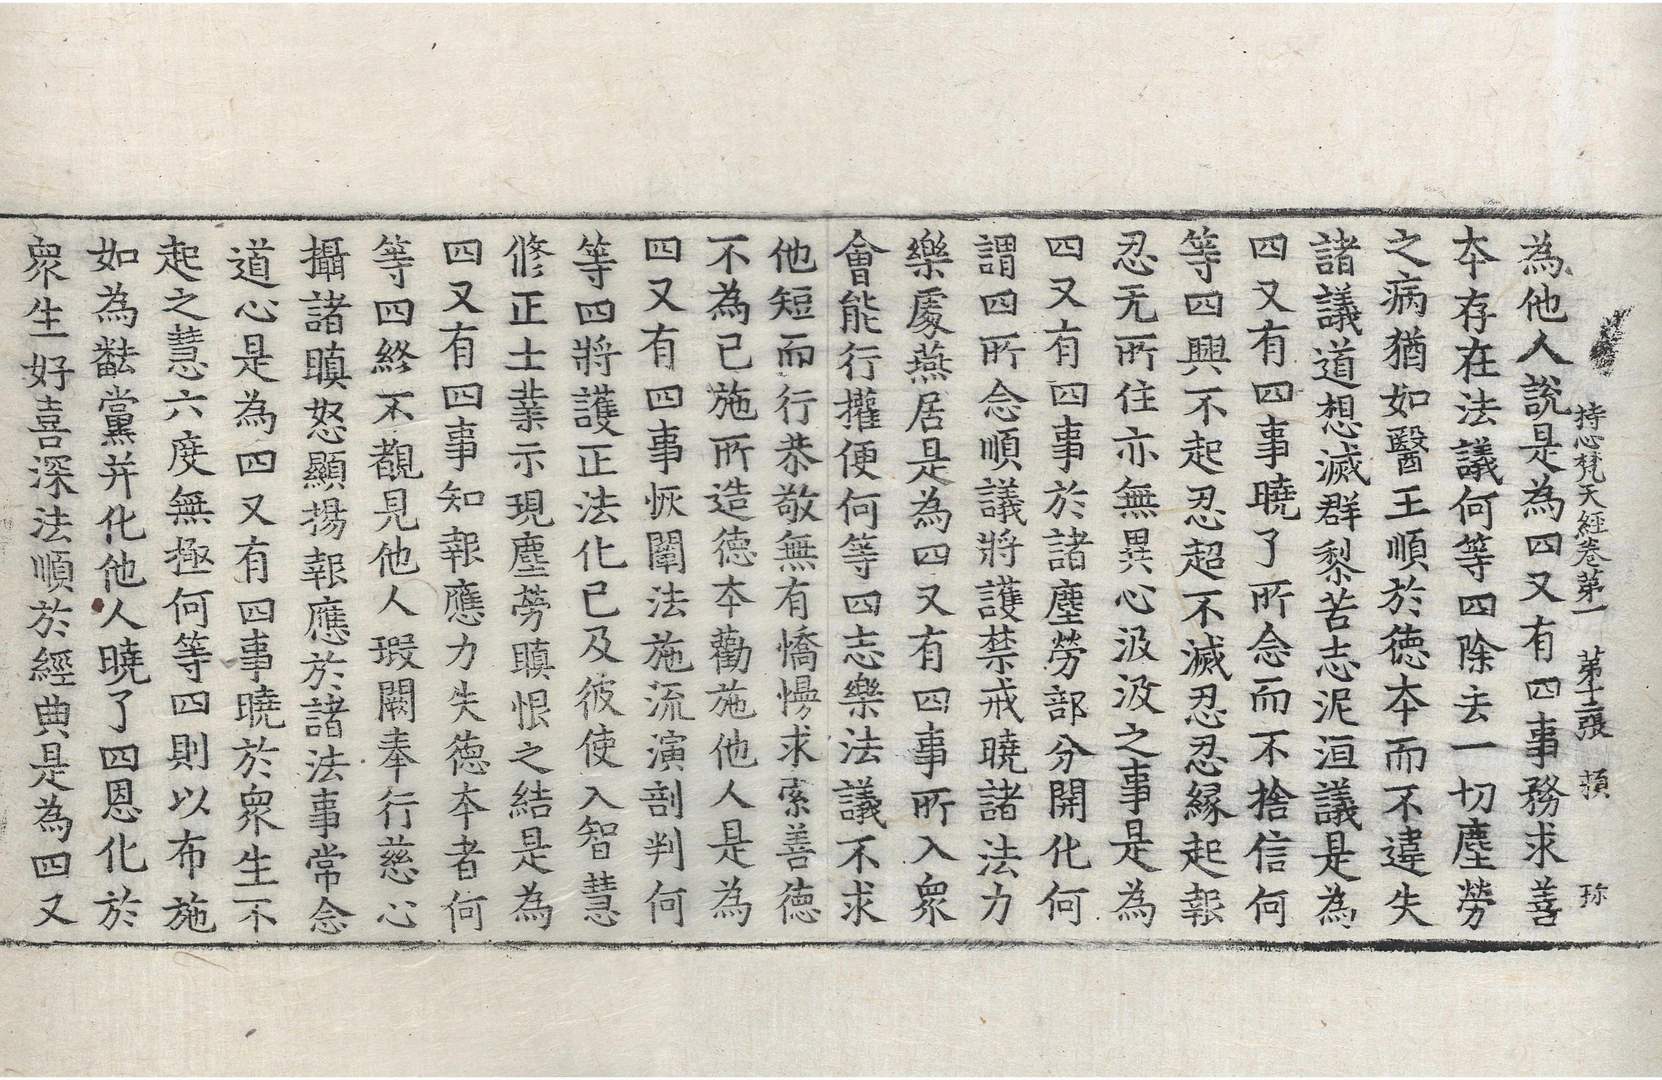 持心梵天經卷第一　第十二張　頦　珎
為他人說是為四又有四事務求善
夲存在法議何等四除去一切塵勞
之病猶如醫王順於德夲而不違失
諸議道想滅群黎苦志泥洹議是為
四又有四事曉了所念而不捨信何
等四興不起忍超不滅忍忍緣起報
忍无所住亦無異心汲汲之事是為
四又有四事於諸塵勞部分開化何
謂四所念順議將護禁戒曉諸法力
樂處燕居是為四又有四事所入衆
會能行權便何等四志樂法議不求
他短而行恭敬無有憍慢求索善德
不為已施所造德夲勸施他人是為
四又有四事恢闡法施流演剖判何
等四將護正法化已及彼使入智慧
修正士業示現塵勞瞋恨之結是為
四又有四事知報應力失德夲者何
等四終不覩見他人瑕闕奉行慈心
攝諸瞋怒顯揚報應於諸法事常念
道心是為四又有四事曉於衆生不
起之慧六度無極何等四則以布施
如為黈黨并化他人曉了四恩化於
衆生好喜深法順於經典是為四又